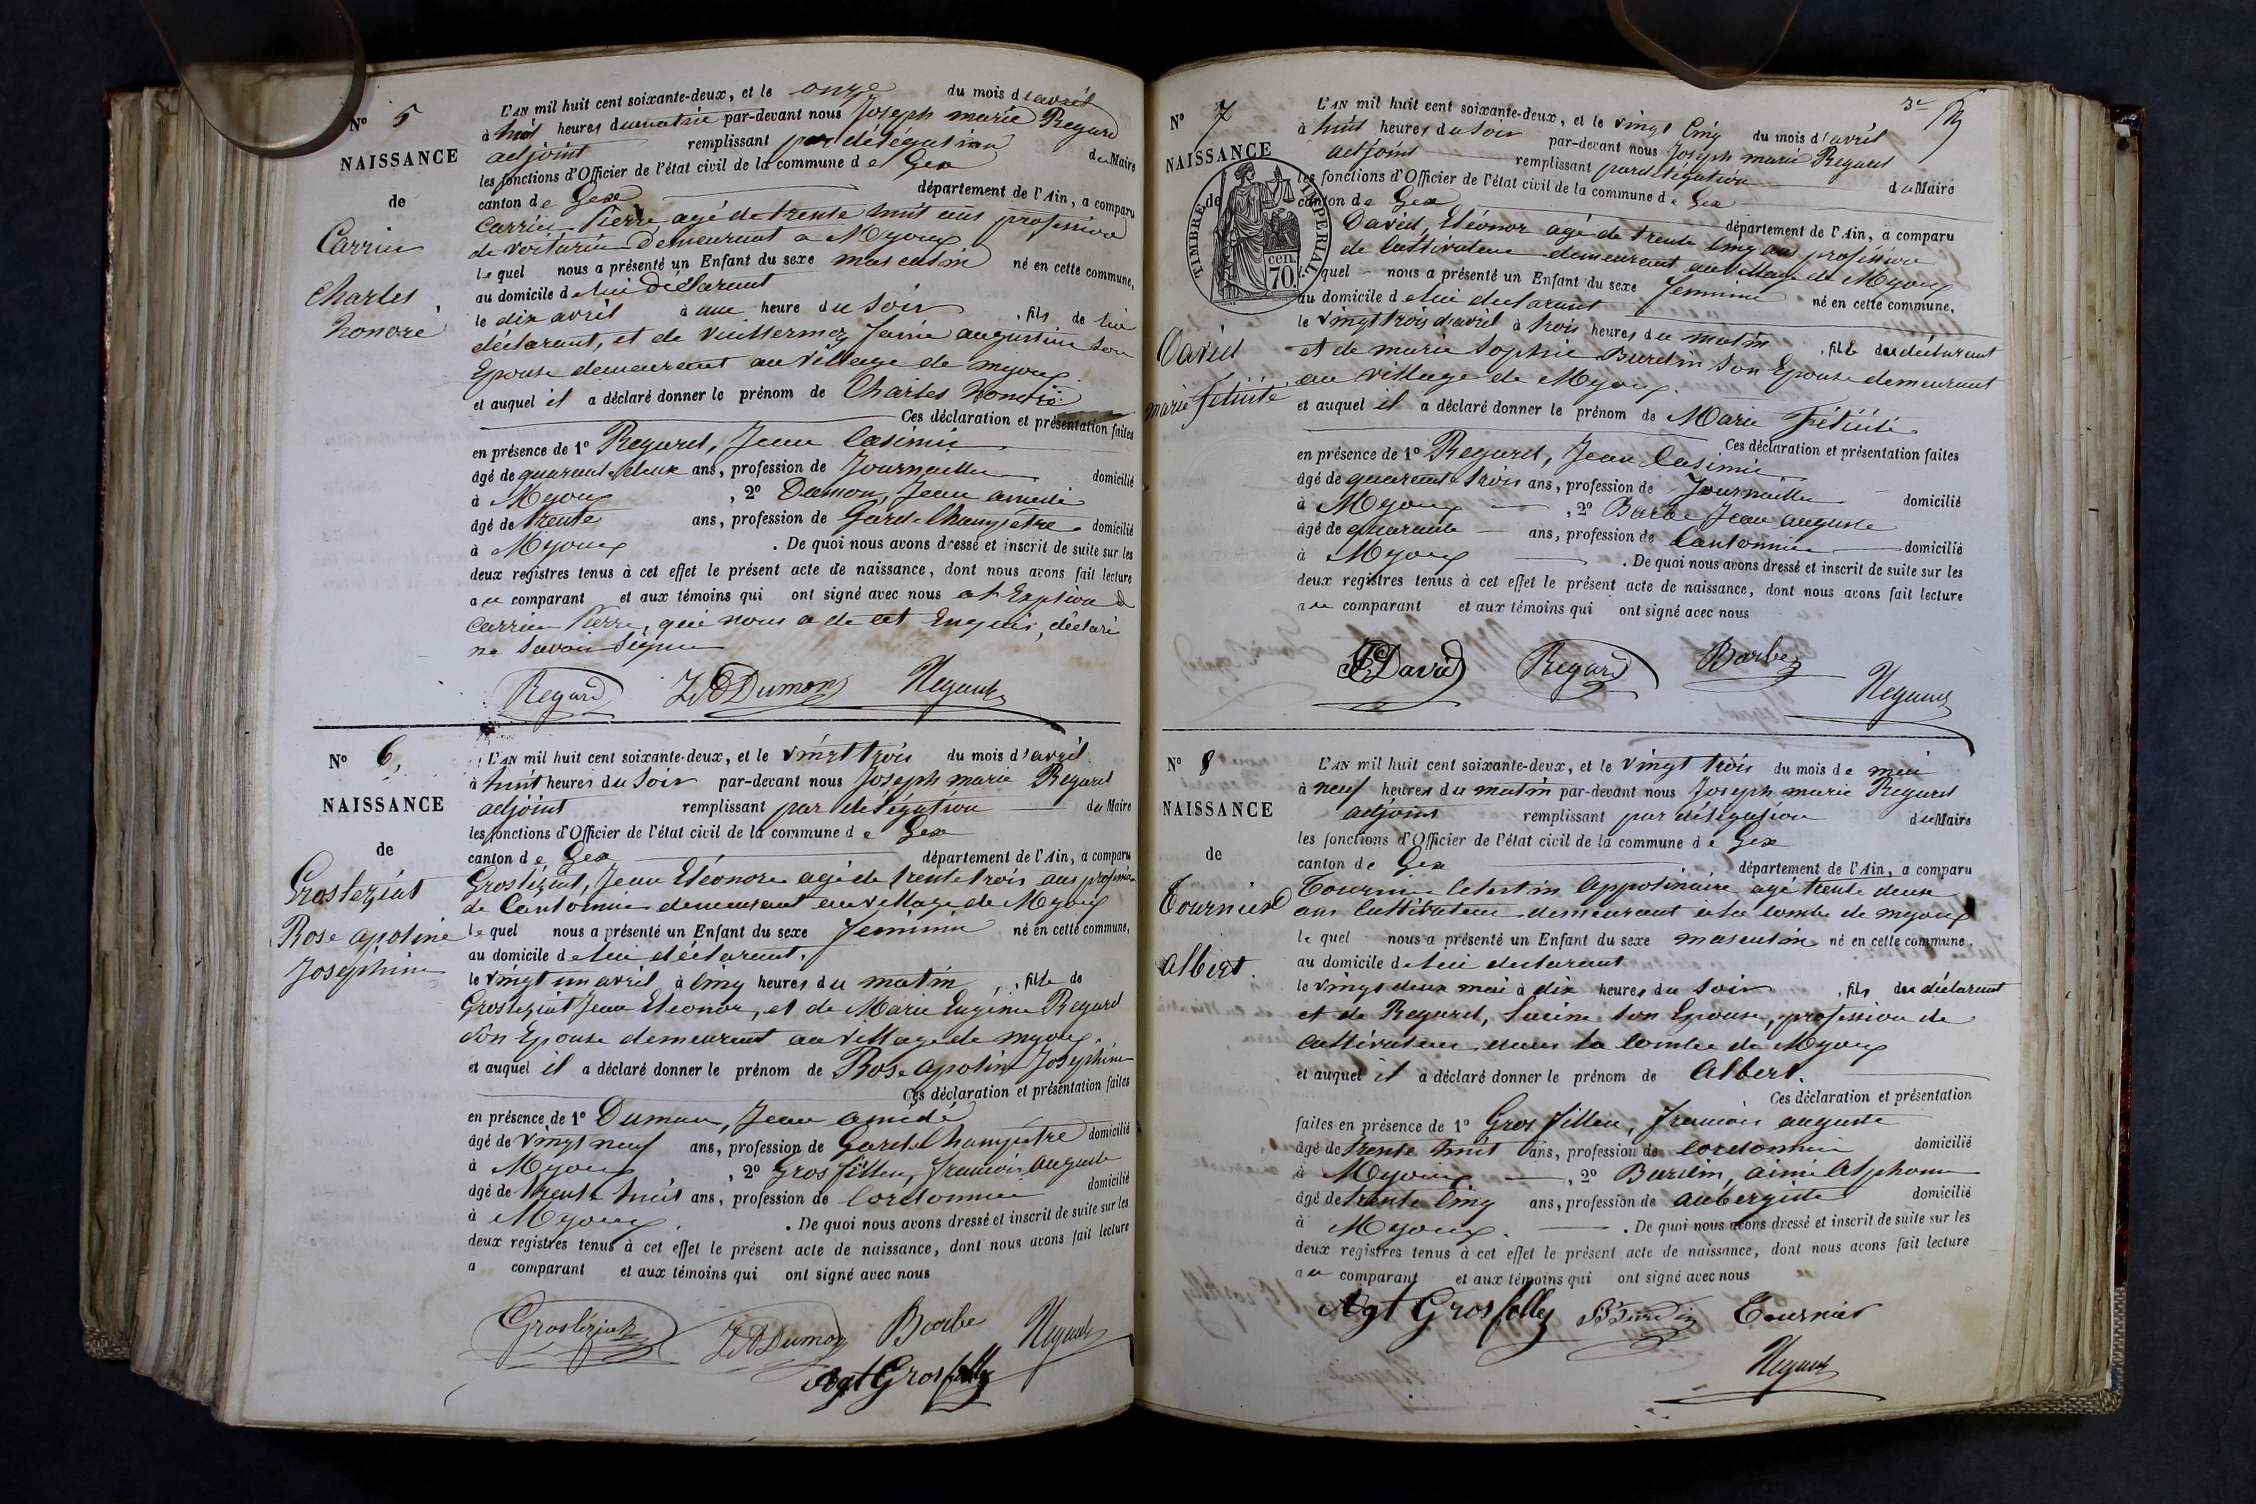 N° 5
NAISSANCE
de
Carrier
Charles
honoré
L'AN mil huit cent soixante-deux, et le onze du mois d'avril
à huit heures du matin par-devant nous Joseph marie Regard
adjoint remplissant par délégation du Maire
les fonctions d'Officier de l'état civil de la commune de Gex
canton de Gex département de l'Ain, a comparu
Carrier Pierre, agé de trente huit ans profession
de voiturier demeurant a Myoux
lequel nous a présenté un Enfant du sexe masculin né en cette commune,
au domicile de lui déclarant
le dix avril à une heure du soir, fils de lui
déclarant, et de Vuillermoz Janie augustine son
Epouse demeurant au village de myoux
et auquel il a déclaré donner le prénom de Charles honoré
Ces déclaration et présentation faites
en présence de 1° Regard, Jean Casimir
âgé de quarante deux ans, profession de Journaillier domicilié
à Myoux, 2° Dumon, Jean amédé
âgé de trente ans, profession de Garde Champêtre domicilié
à Myoux. De quoi nous avons dressé et inscrit de suite sur les
deux registres tenus à cet effet le présent acte de naissance, dont nous avons fait lecture
au comparant et aux témoins qui ont signé avec nous
Carrier Pierre, qui nous a de cet Enquis, déclaré
ne savoir signer
Regard JADumon Regard
N° 6,
NAISSANCE
de
Grostéziat
Rose apoline
Joséphine
L'AN mil huit cent soixante-deux, et le vingt trois du mois d'avril
à huit heures du soir par-devant nous Joseph marie Regard
adjoint remplissant par délégation du Maire
les fonctions d'Officier de l'état civil de la commune de Gex
canton de Gex département de l'Ain, a comparu
Grostéziat, Jean Eléonore agé de trente trois ans profession
de Cantonnier demeurant au village de Myoux
lequel nous a présenté un Enfant du sexe féminin né en cette commune,
au domicile de lui déclarant.
le vingt un avril à cinq heures du matin, fille de
Grosteziat Jean Eleonor, et de Marie Eugénie Regard
son Epouse demeurant au village de myoux.
et auquel il a déclaré donner le prénom de Rose apoline Joséphine
Ces déclaration et présentation faites
en présence de 1° Dumon, Jean amédé
âgé de vingt neuf ans, profession de Garde Champêtre domicilié
à Myoux, 2° Grosfilley, francois auguste
âgé de trente huit ans, profession de Cordonnier domicilié
à Myoux. De quoi nous avons dressé et inscrit de suite sur les
deux registres tenus à cet effet le présent acte de naissance, dont nous avons fait lecture
a comparant et aux témoins qui ont signé avec nous
Grosteziat JADumon Barbe Regard
Agt Grosfilley
3e
N° 7
NAISSANCE
de
TIMBRE IMPERIAL
70 cen.
David
marie félicité
L'AN mil huit cent soixante-deux, et le vingt cinq du mois d'avril
à huit heures du soir par-devant nous Joseph marie Regard
adjoint remplissant par délégation du Maire
les fonctions d'Officier de l'état civil de la commune de Gex
canton de Gex département de l'Ain, a comparu
David, Eléonor agé de trente cinq ans profession
de cultivateur demeurant au village de Myoux
lequel nous a présenté un Enfant du sexe féminin né en cette commune,
au domicile de lui déclarant
le vingt trois d'avril à trois heures du matin, fille du déclarant
et de marie sophie Burdin son Epouse demeurant
au village de Myoux.
et auquel il a déclaré donner le prénom de Marie félicité
Ces déclaration et présentation faites
en présence de 1° Regard, Jean Casimir
âgé de quarante trois ans, profession de Journaillier domicilié
à Myoux, 2° Barbe Jean auguste
âgé de quarante ans, profession de Cantonnier domicilié
à Myoux. De quoi nous avons dressé et inscrit de suite sur les
deux registres tenus à cet effet le présent acte de naissance, dont nous avons fait lecture
au comparant et aux témoins qui ont signé avec nous
David Regard Barbe Regard
N° 8
NAISSANCE
de
Tournier
Albert.
L'AN mil huit cent soixante-deux, et le vingt trois du mois de mai
à neuf heures du matin par-devant nous Joseph marie Regard
adjoint remplissant par délégation du Maire
les fonctions d'Officier de l'état civil de la commune de Gex
canton de Gex département de l'Ain, a comparu
Tournier Celestin Appolinaire agé trente deux
ans Cultivateur demeurant à la Combe de myoux
lequel nous a présenté un Enfant du sexe masculin né en cette commune,
au domicile de lui déclarant
le vingt deux mai à dix heures du soir, fils du déclarant
et de Regard, Lucine son Epouse, profession de
cultivateur dans la Combe de Myoux
et auquel il a déclaré donner le prénom de Albert.
Ces déclaration et présentation
faites en présence de 1° Gros filley, francois auguste
âgé de trente huit ans, profession de Cordonnier domicilié
à Myoux, 2° Burdin, aimé Alphonse
âgé de trente cinq ans, profession de aubergiste domicilié
à Myoux. De quoi nous avons dressé et inscrit de suite sur les
deux registres tenus à cet effet le présent acte de naissance, dont nous avons fait lecture
au comparant et aux témoins qui ont signé avec nous
Agt Grosfilley Burdin Tournier
Regard